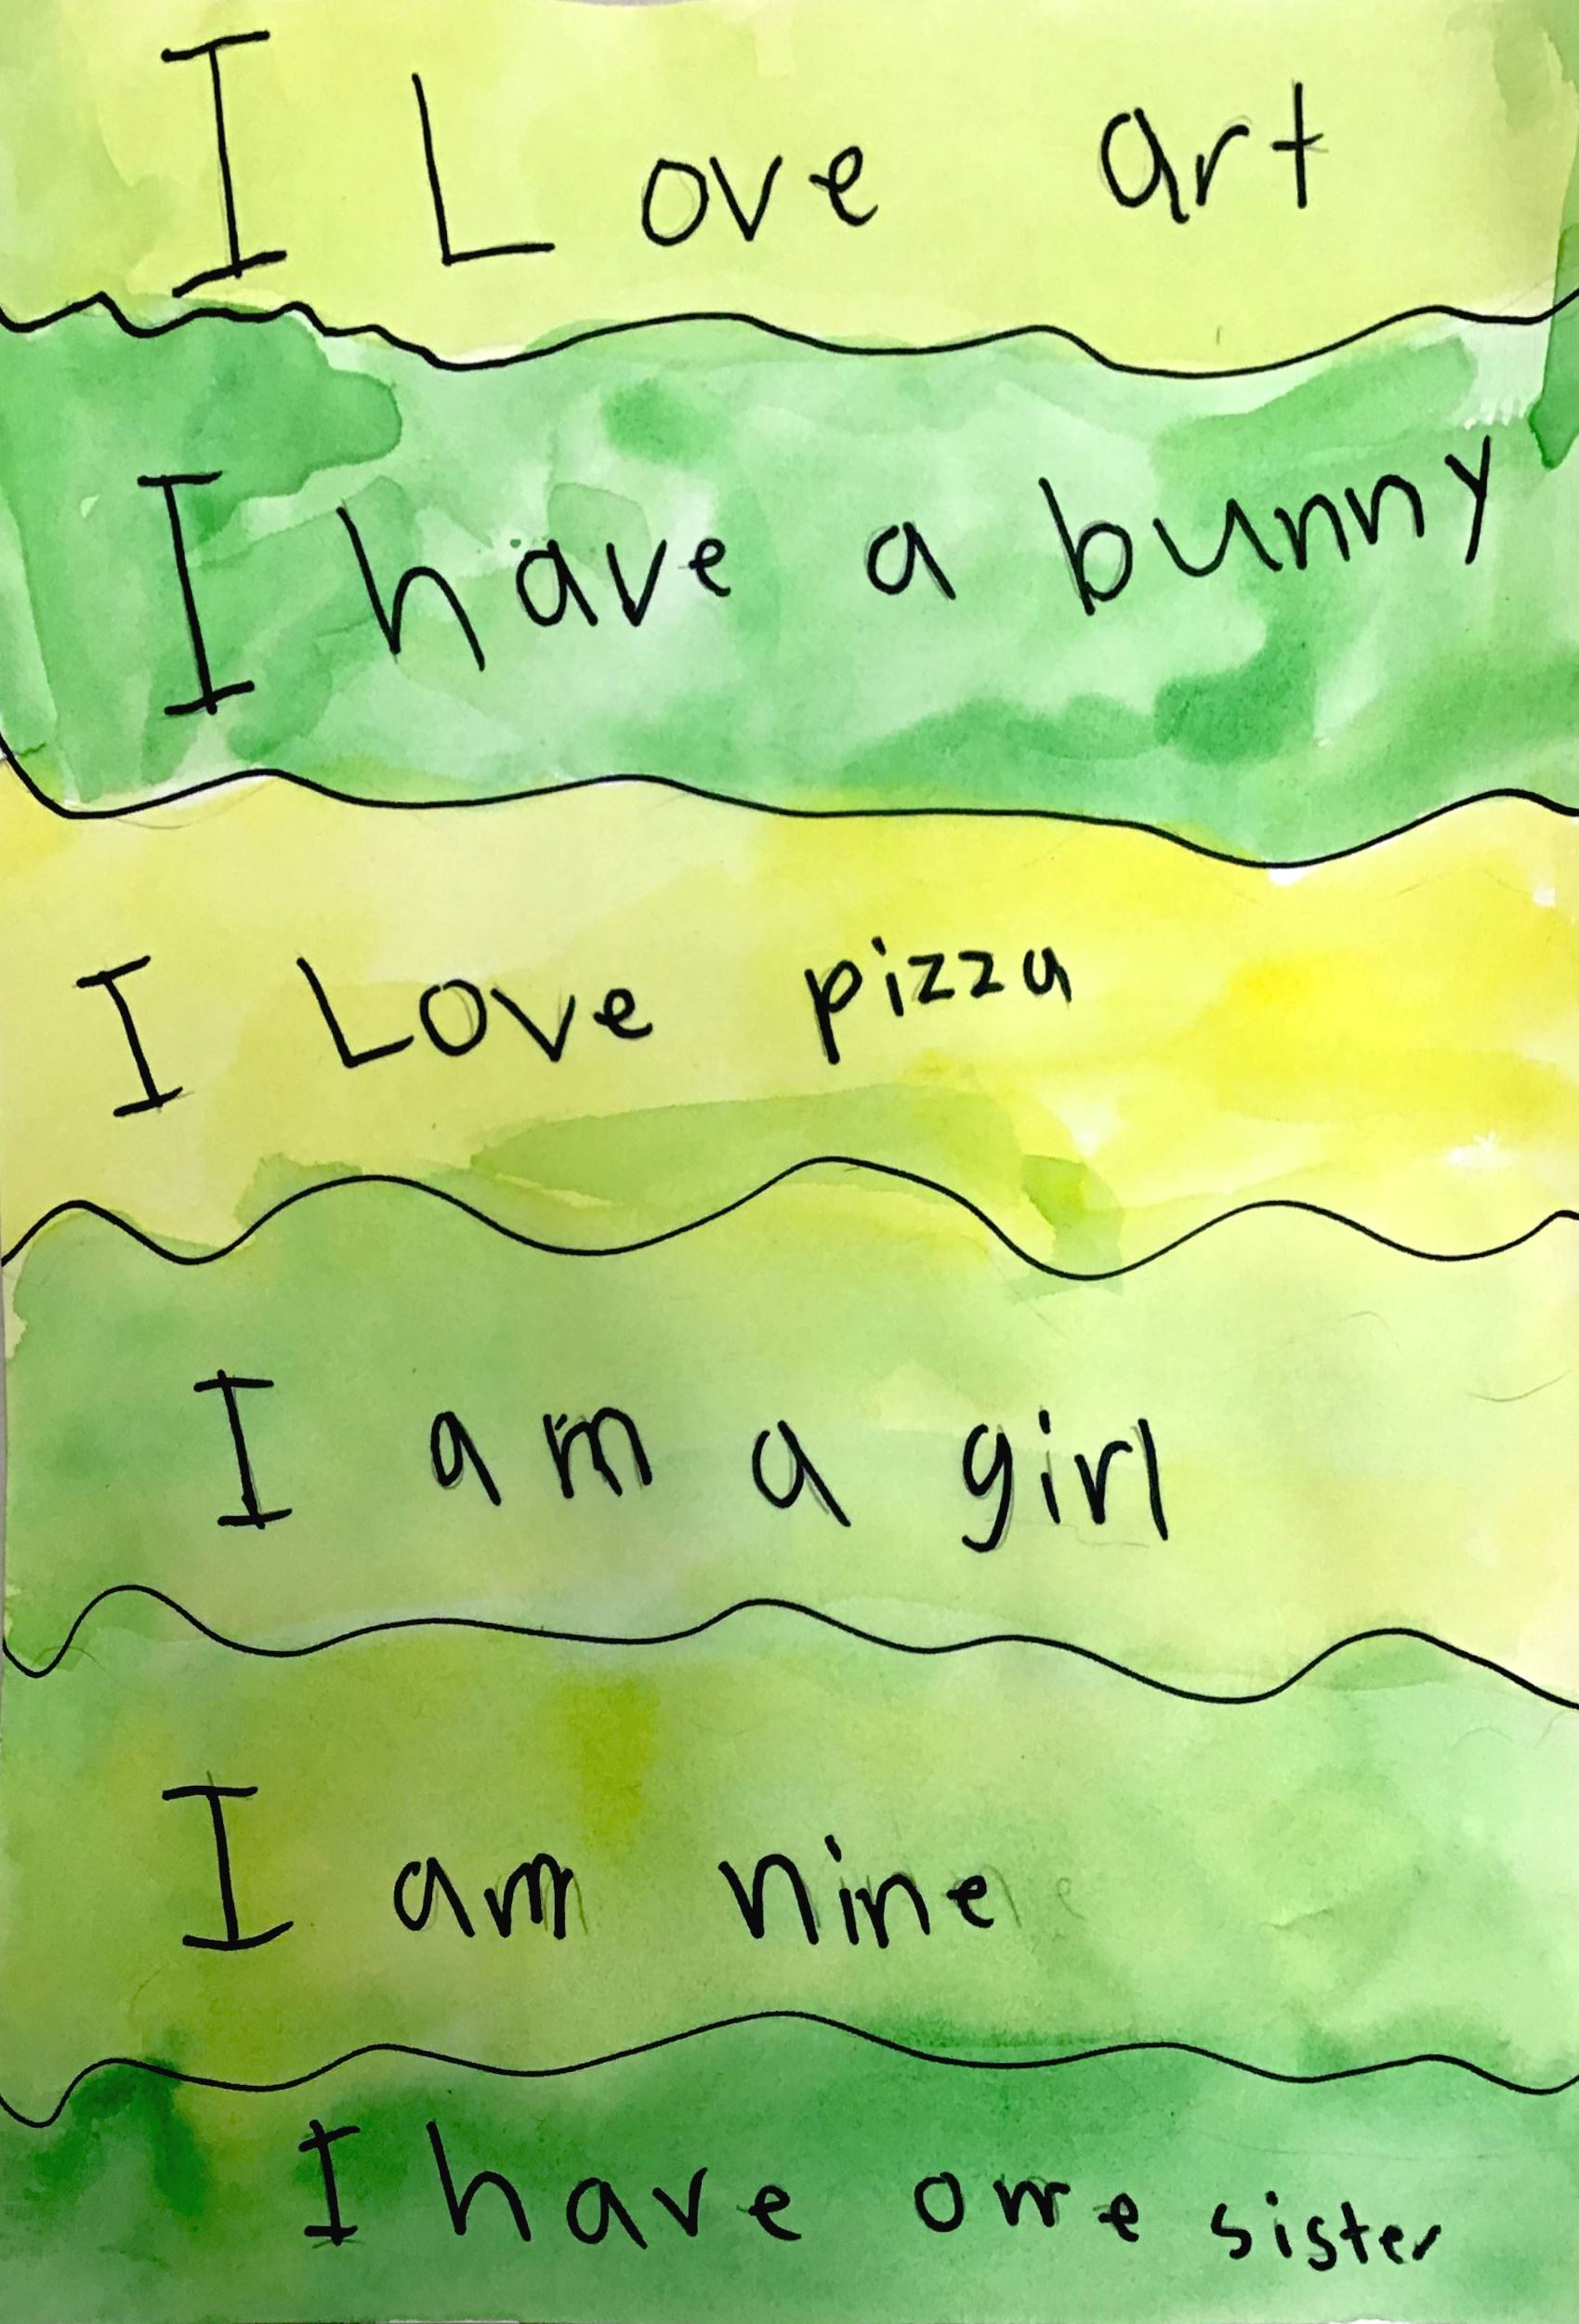 I Love art
I have a bunny
I Love pizza
I am a girl
I am nine
I have one sister